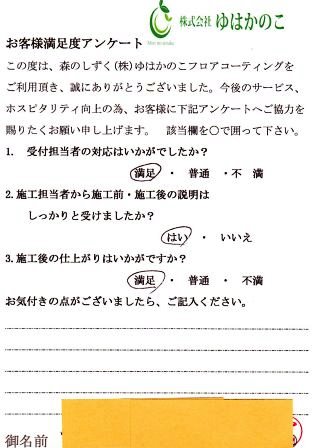 株式会社 ゆはかのこ
お客様満足度アンケート
この度は、森のしずく(株)ゆはかのこフロアコーティングを
ご利用頂き、誠にありがとうございました。今後のサービス、
ホスピタリティ向上の為、お客様に下記アンケートへご協力を
賜りたくお願い申し上げます。 該当欄を〇で囲って下さい。
1. 受付担当者の対応はいかがでしたか？
満足 ・ 普通 ・不 満
2.施工担当者から施工前・施工後の説明は
しっかりと受けましたか？
はい ・ いいえ
3.施工後の仕上がりはいかがですか？
満足 ・ 普通 ・ 不満
お気付きの点がございましたら、ご記入ください。
御名前